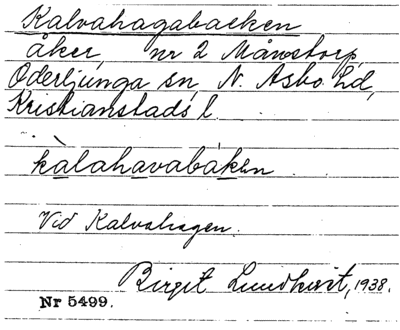 Kalvahagabacken
åker, nr 2 Månstorp,
Oderljunga sn, N. Åsbo hd,
Kristianstads l.
kàlahavabáken
Vid Kalvahagen.
Birgit Lundkvist, 1938.
Nr 5499.